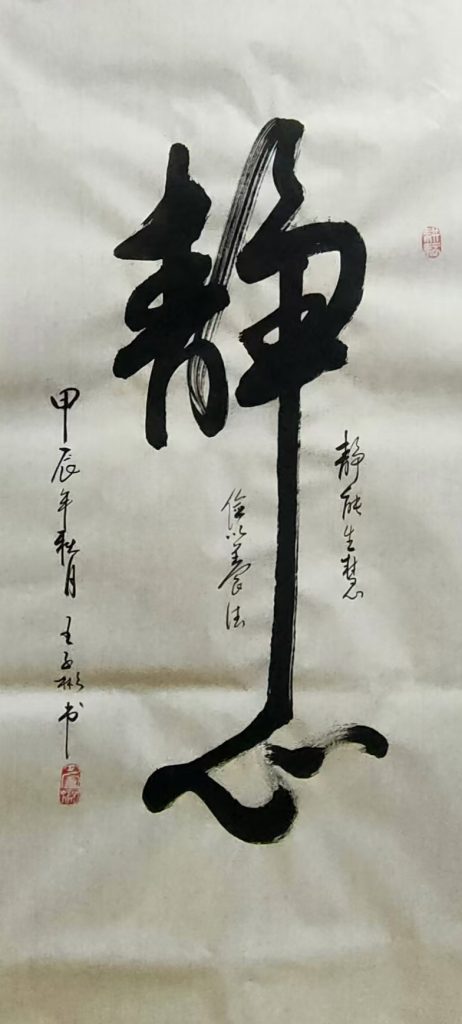 静心
静能生慧
俭以养德
甲辰年秋月 王子彬书